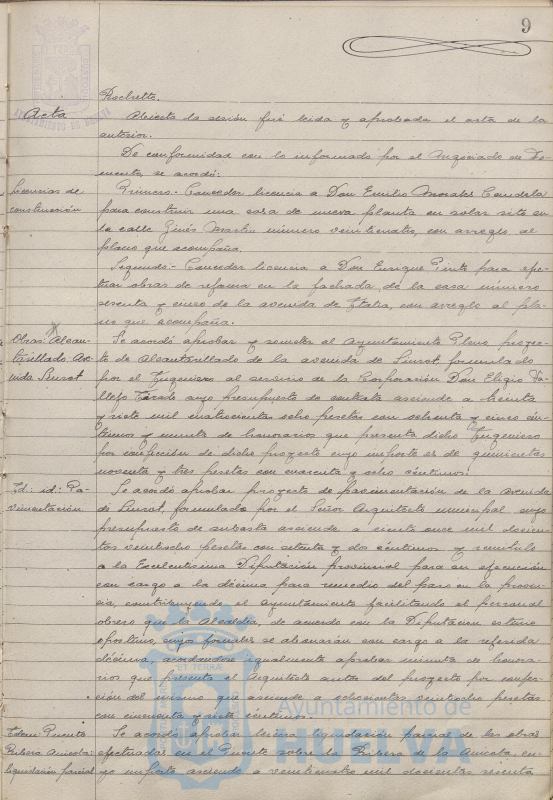 9
Rochetto.
Acta
Abierta la sesión fué leida y aprobada el acta de la
anterior.
De conformidad con lo informado por el Negociado de Fo-
mento, se acordó:
Licencias de
construcción
Primero.- Conceder licencia a Don Emilio Morales Candela
para construir una casa de nueva planta en solar sito en
la calle Ginés Martin número veinticuatro, con arreglo al
plano que acompaña.
Segundo.- Conceder licencia a Don Enrique Pinto para efec-
tuar obras de reforma en la fachada de la casa número
sesenta y cinco de la avenida de Italia, con arreglo al pla-
no que acompaña.
Obras Alcan-
tarillado Ave-
nida
Se acordó aprobar y someter al Ayuntamiento Pleno proyec-
to de Alcantarillado de la avenida de formulado
por el Ingeniero al servicio de la Corporación Don Eligio Va-
llejo cuyo presupuesto de contrata asciende a treinta
y siete mil cuatrocientas ocho pesetas con ochenta y cinco cén-
timos y minuta de honorarios que presenta dicho Ingeniero
por confección de dicho proyecto cuyo importe es de quinientas
noventa y tres pesetas con cuarenta y ocho céntimos.
Id: id: Pa-
vimentación
Se acordó aprobar proyecto de pavimentación de la Avenida
de formulado por el Señor Arquitecto municipal cuyo
presupuesto de subasta asciende a ciento once mil doscien-
tas veintiocho pesetas con setenta y dos céntimos y remitirlo
a la Excelentísima Diputación provincial para su ejecución
con cargo a la décima para remedio del paro en la provin-
cia, contribuyendo el Ayuntamiento facilitando el personal
obrero que la Alcaldía, de acuerdo con la Diputación estime
oportuno, cuyos jornales se abonarán con cargo a la referida
décima, acordándose igualmente aprobar minuta de honora-
rios que presenta el Arquitecto autor del proyecto por confec-
ción del mismo que asciende a ochocientas veintiocho pesetas
con cincuenta y siete céntimos.
Idem Puente
Ribera Anicoba:
liquidación parcial
Se acordó aprobar tercera liquidación parcial de las obras
efectuadas en el Puente sobre la Ribera de la Anicoba, cu-
yo importe asciende a veinticuatro mil doscientas sesenta
Ayuntamiento de
HUELVA